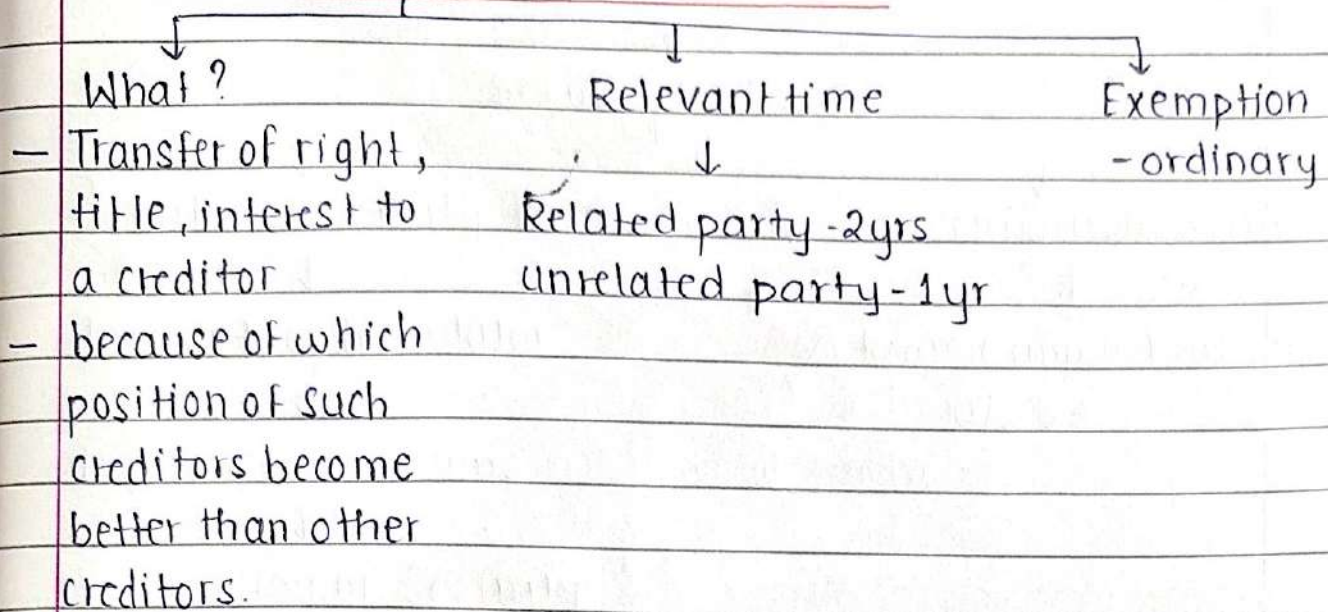 What?
— Transfer of right,
title, interest to
a creditor
— because of which
position of such
creditors become
better than other
creditors.
Relevant time
↓
Related party - 2yrs
unrelated party - 1yr
Exemption
- ordinary